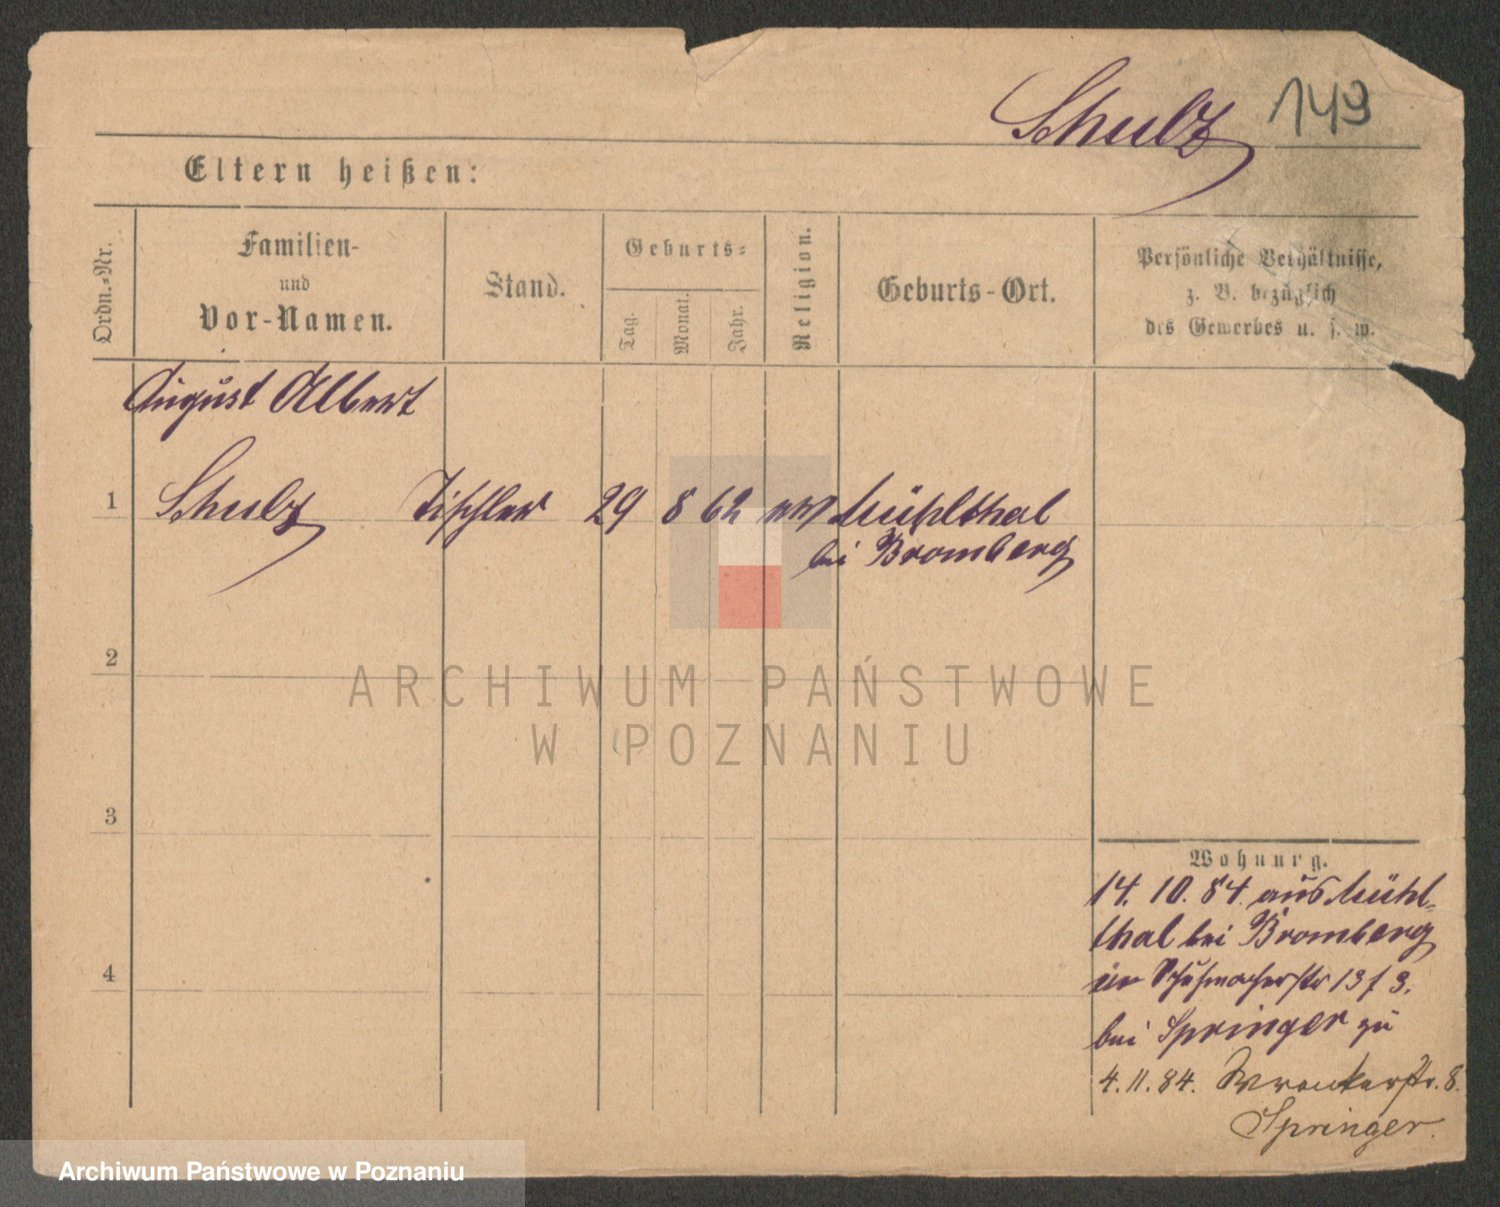 Schulz 149
Eltern heißen:
Ordn.-Nr.
Familien-
und
Vor-Namen.
Stand.
Geburts-
Tag.
Monat.
Jahr.
Religion.
Geburts-Ort.
Persönliche Verhältnisse,
z. B. bezüglich
des Gewerbes u. s. w.
August Albert
1 Schulz Tischler 29 8 62 ev Mühlthal
bei Bromberg
2
3
4
Wohnung.
14. 10. 84. aus Mühl-
thal bei Bromberg
Schuhmacherstr 13
bei Springer zu
4. 11. 84. Wronkerstr. 8.
Springer.
ARCHIWUM PAŃSTWOWE
W POZNANIU
Archiwum Państwowe w Poznaniu